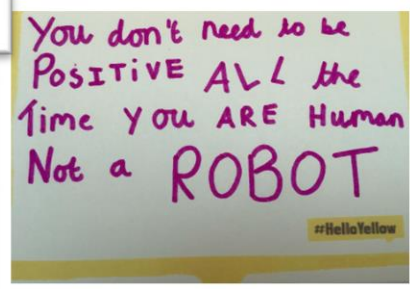 You don't need to be
POSITIVE ALL the
Time You ARE Human
Not a ROBOT
#HelloYellow